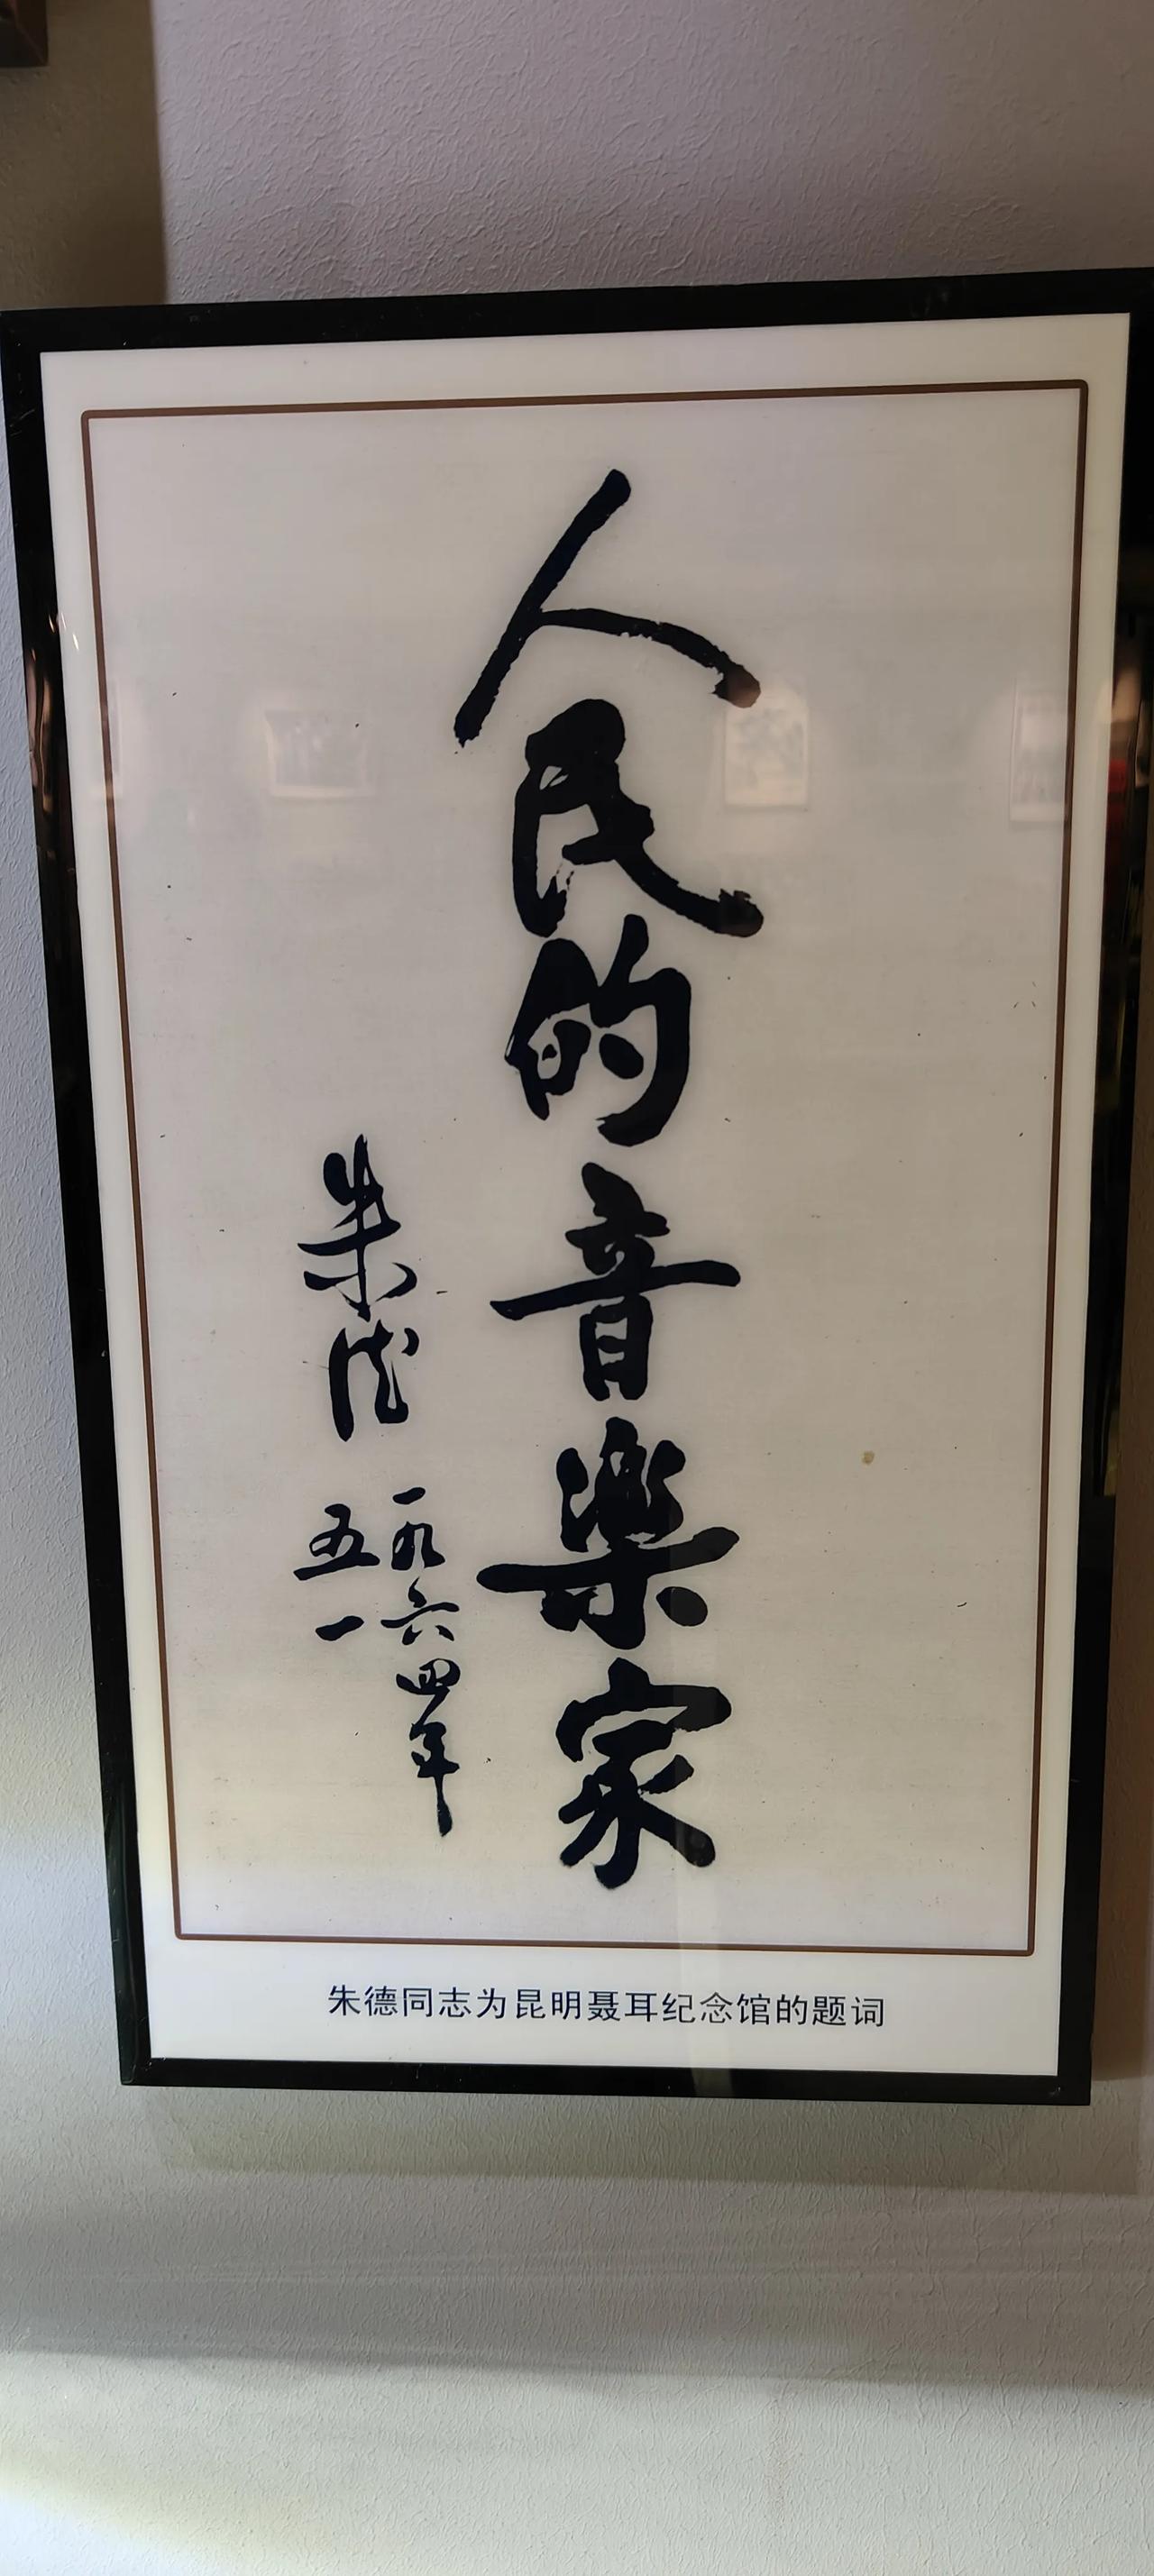 人民的音樂家
朱德
一九六四年
五一
朱德同志为昆明聂耳纪念馆的题词